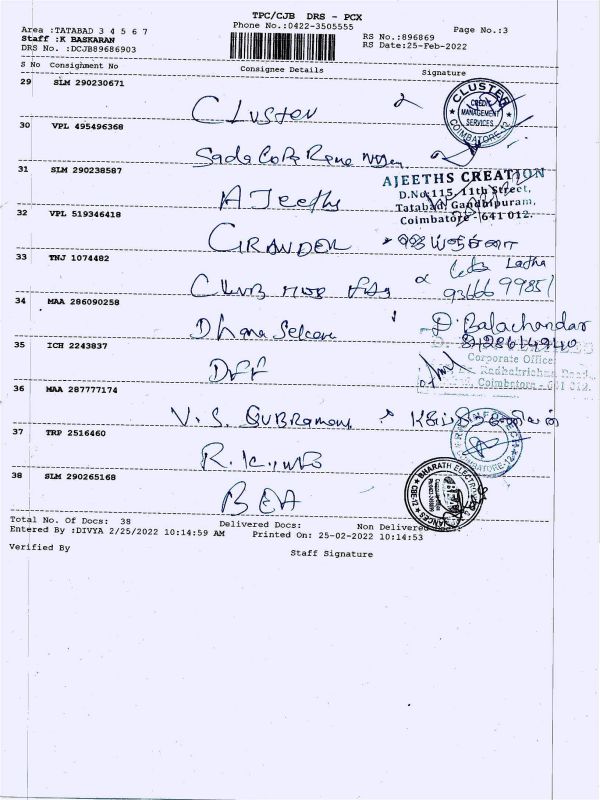 TPC/CJB DRS - PCX
Area :TATABAD 3 4 5 6 7
Phone No.:0422-3505555
Page No.:3
Staff :K BASKARAN
RS No.:896869
DRS No. :DCJB89686903
RS Date:25-Feb-2022
S No Consignment No Consignee Details Signature
29 SLM 290230671
Cluster
CLUSTER
CREDIT
MANAGEMENT
SERVICES
COIMBATORE-12
30 VPL 495496368
31 SLM 290238587
AJeeths
AJEETHS CREATION
D.No:115, 11th Street,
Tatabad, Gandhipuram,
Coimbatore - 641 012.
32 VPL 519346418
GRANDEL
33 TNJ 1074482
Latha
93666 99851
34 MAA 286090258
Dhana Selvan
D. Balachandar
35 ICH 2243837
DFF
Corporate Office:
Radhakrishna Road,
Coimbatore - 641 012.
36 MAA 287777174
V. S. SUBRamani
37 TRP 2516460
R.K. info
38 SLM 290265168
BEA
BHARATH ELECTRONICS &
CBE-12
Total No. Of Docs: 38 Delivered Docs: Non Delivered
Entered By :DIVYA 2/25/2022 10:14:59 AM Printed On: 25-02-2022 10:14:53
Verified By Staff Signature